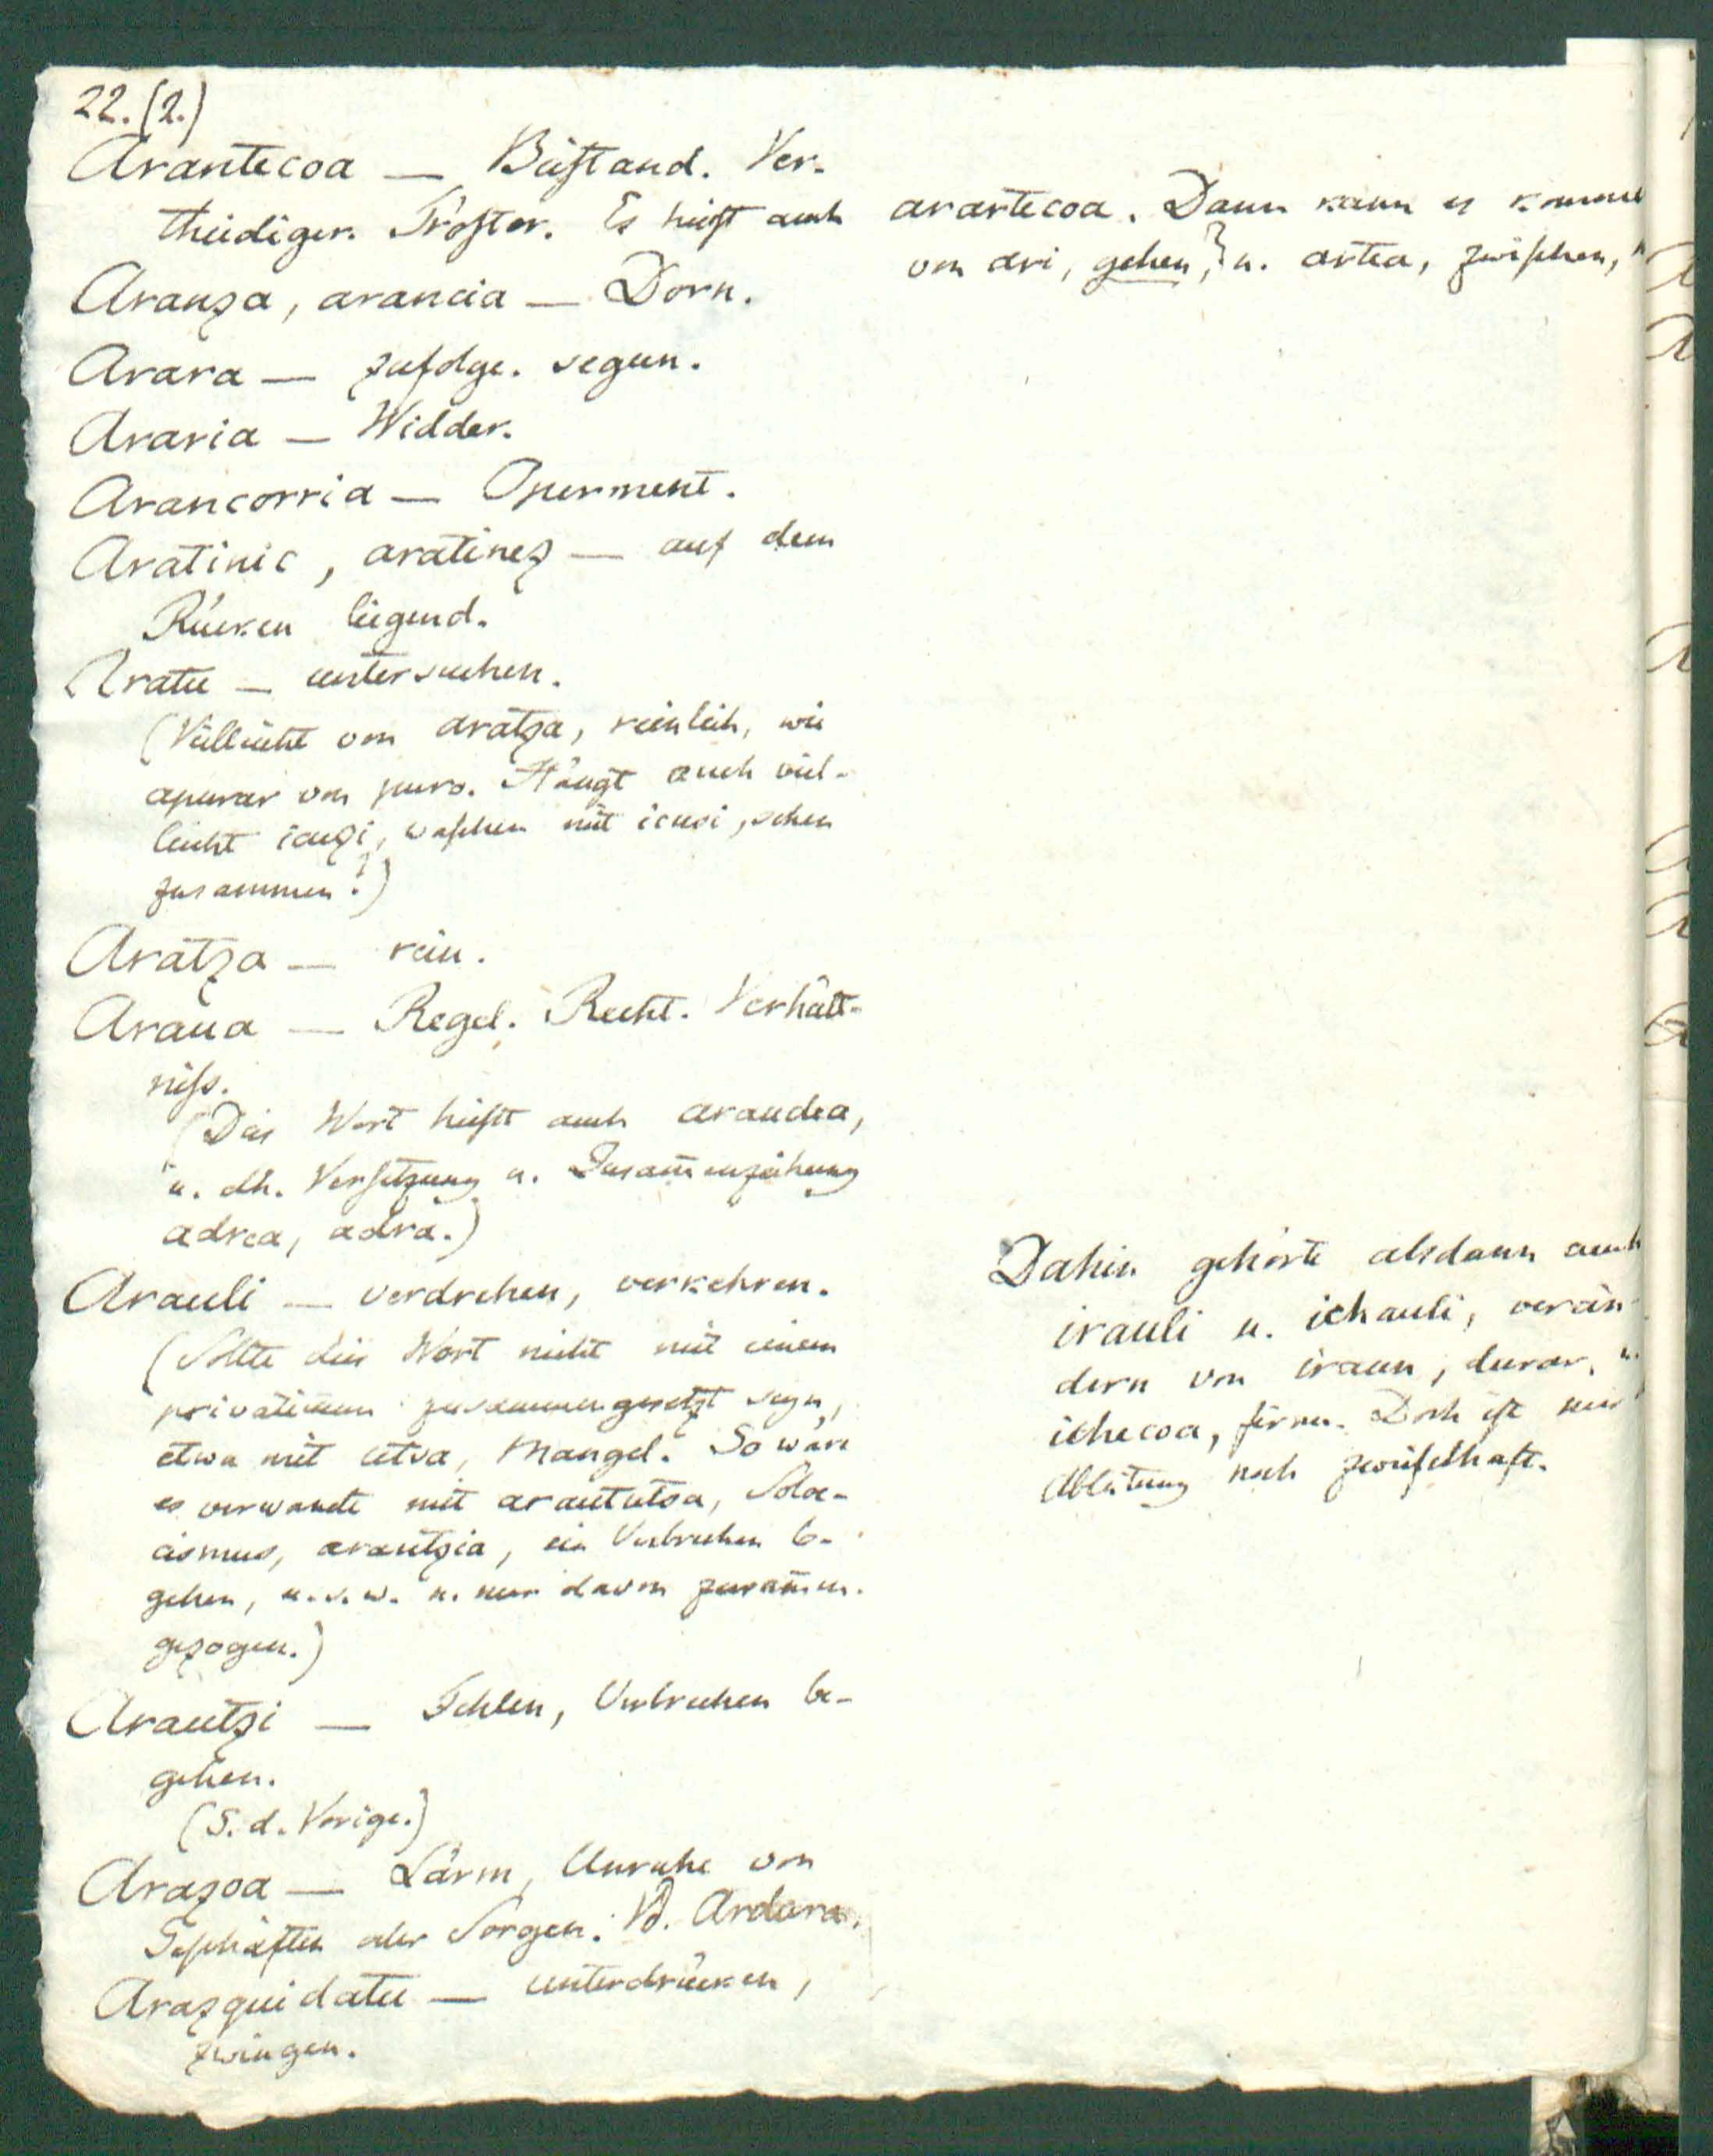 22. (2.)
Arantecoa — Beistand. Ver-
theidiger. Tröster. Es heist auch
arartecoa. Dann kann es kommen
von ari, gehen, u. artea, zwischen,
Aranza, arancia — Dorn.
Arara — zufolge. segun.
Araria — Widder.
Arancorria — Operment.
Aratinic, aratinez — auf dem
Rücken liegend.
Aratu — untersuchen.
(Vielleicht von aratza, reinlich, wie
apurar von puro. Hängt auch viel-
leicht icuzi, waschen mit icusi, sehen
zusammen?)
Aratza — rein.
Araua — Regel. Recht. Verhält-
niss.
(Dies Wort heisst auch araudea,
u. dh. Versetzung u. Zusam̄enziehung
adrea, adra.)
Arauli — verdrehen, verkehren.
(Sollte dies Wort nicht mit einem
privativum zusammengesetzt seyn,
etwa mit utsa, Mangel. So wäre
es verwandt mit araututsa, Soloe-
cismus, arautzia, ein Verbrechen be-
gehen, u. s. w. u. nur davon zusam̄en-
gezogen.)
Dahin gehörte alsdann auch
irauli u. ichauli, verän-
dern von iraun, durar, u.
ichecoa, firme. Doch ist
Ableitung noch zweifelhaft.
Arautzi — Fehlen, Verbrechen be-
gehen.
(S. d. Vorige.)
Arazoa — Lärm, Unruhe von
Geschäften oder Sorgen. Vd. Ardura.
Arazquidatu — unterdrücken,
zwingen.